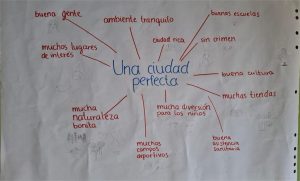 buena gente
ambiente tranquilo
buenas escuelas
muchos lugares
de interés
ciudad rica
sin crimen
Una ciudad
perfecta
buena cultura
muchas tiendas
mucha
naturaleza
bonita
mucha diversión
para los niños
muchos
campos
deportivos
buena
asistencia
sanitaria